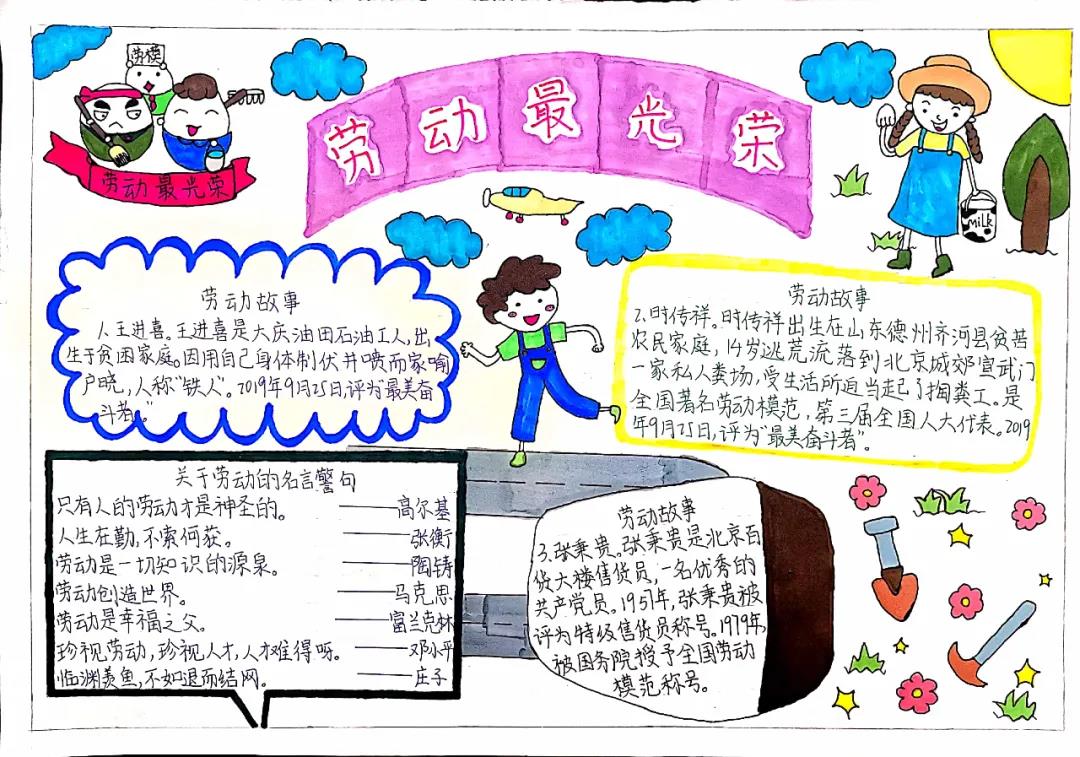 劳模
劳动最光荣
劳动最光荣
劳动故事
1.王进喜。王进喜是大庆油田石油工人,出
生于贫困家庭。因用自己身体制伏井喷而家喻
户晓,人称“铁人”。2019年9月25日,评为“最美奋
斗者。”
劳动故事
2.时传祥。时传祥出生在山东德州齐河县贫苦
农民家庭,14岁逃荒流落到北京城郊宣武门
一家私人粪场,受生活所迫当起了掏粪工。是
全国著名劳动模范,第三届全国人大代表。2019
年9月25日,评为“最美奋斗者”。
关于劳动的名言警句
只有人的劳动才是神圣的。——高尔基
人生在勤,不索何获。——张衡
劳动是一切知识的源泉。——陶铸
劳动创造世界。——马克思
劳动是幸福之父。——富兰克林
珍视劳动,珍视人才,人才难得呀。——邓小平
临渊羡鱼,不如退而结网。——庄子
劳动故事
3.张秉贵。张秉贵是北京百
货大楼售货员,一名优秀的
共产党员。1957年,张秉贵被
评为特级售货员称号。1979年,
被国务院授予全国劳动
模范称号。
milk